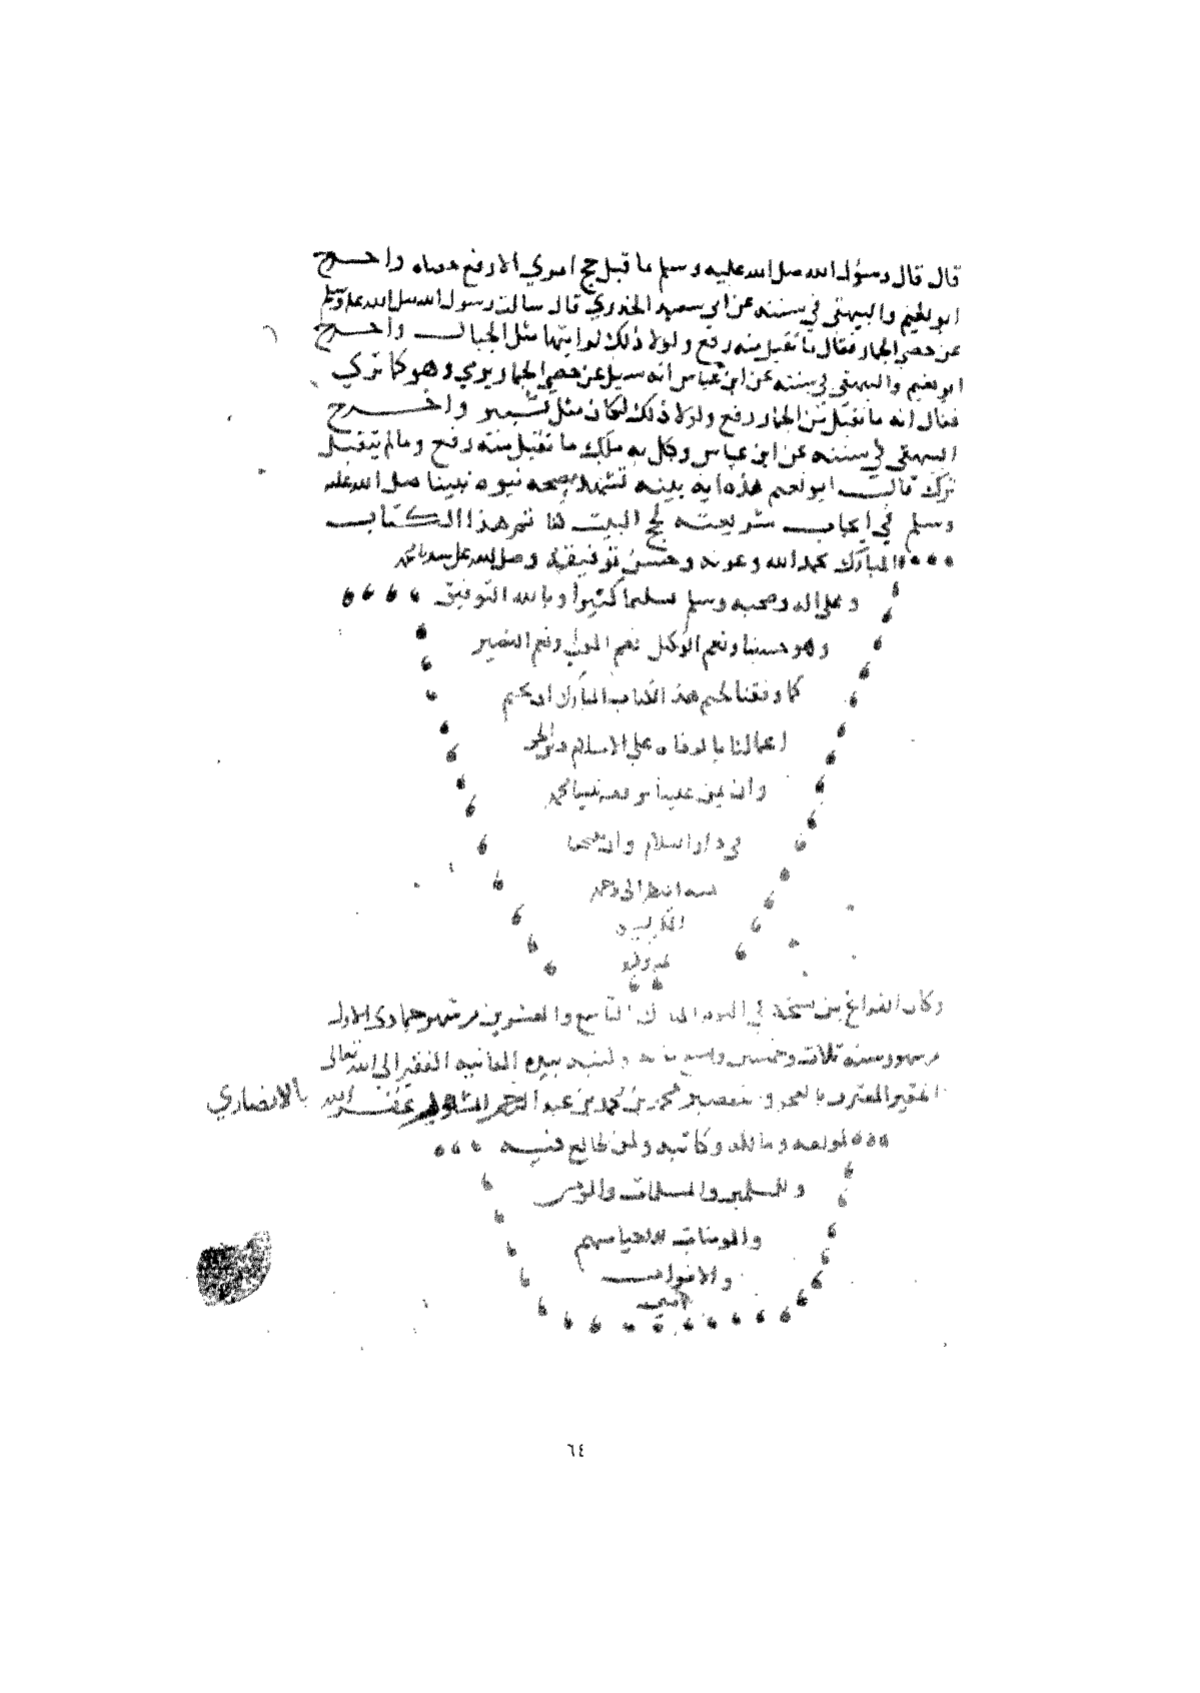 قال قال رسول الله صلى الله عليه وسلم ما قبل حج امرئ الا رفع حصاه واخرج
ابو نعيم والبيهقي في سننه عن ابي سعيد الخدري قال سالت رسول الله صلى الله عليه وسلم
عن حصى الجمار فقال ما تقبل منه رفع ولولا ذلك لرايتها مثل الجبال واخرج
ابو نعيم والبيهقي في سننه عن ابن عباس انه سيل عن حصى الجمار يرمي وهو كما تري
فقال انه ما تقبل من الجمار رفع ولولا ذلك لكان مثل ثبير واخرج
البيهقي في سننه عن ابن عباس وكل به ملك ما تقبل منه رفع وما لم يتقبل
ترك قال ابو نعيم هذه اية بينه تشهد بصحه نبوه نبينا صلى الله عليه
وسلم في ايجاب شريعته لحج البيت تم هذا الكتاب
المبارك بحمد الله وعونه وحسن توفيقه وصلى الله على سيدنا محمد
وعلى اله وصحبه وسلم تسليما كثيرا وبالله التوفيق
وهو حسبنا ونعم الوكيل نعم المولي ونعم النصير
كما وفقنا لختم هذا الكتاب المبارك ان يختم
اعمالنا بالوفاه على الاسلام
وان يمن علينا
في دار السلام وان
النظر الى وجهه
الكريم

وكان الفراغ من نسخه في اليوم المبارك التاسع والعشرين من شهر جمادى الاول
من شهور سنة ثلاث وخمسين بيده الفانيه الفقير الى الله تعالى
الحقير المعترف بالعجز والتقصير محمد بن محمد بن عبد الرحمن غفر الله
الانصاري
لمولفه ومالكه وكاتبه ولمن طالع فيه
وللمسلمين والمسلمات والمومنين
والمومنات الاحيا منهم
والاموات
امين
٦٤